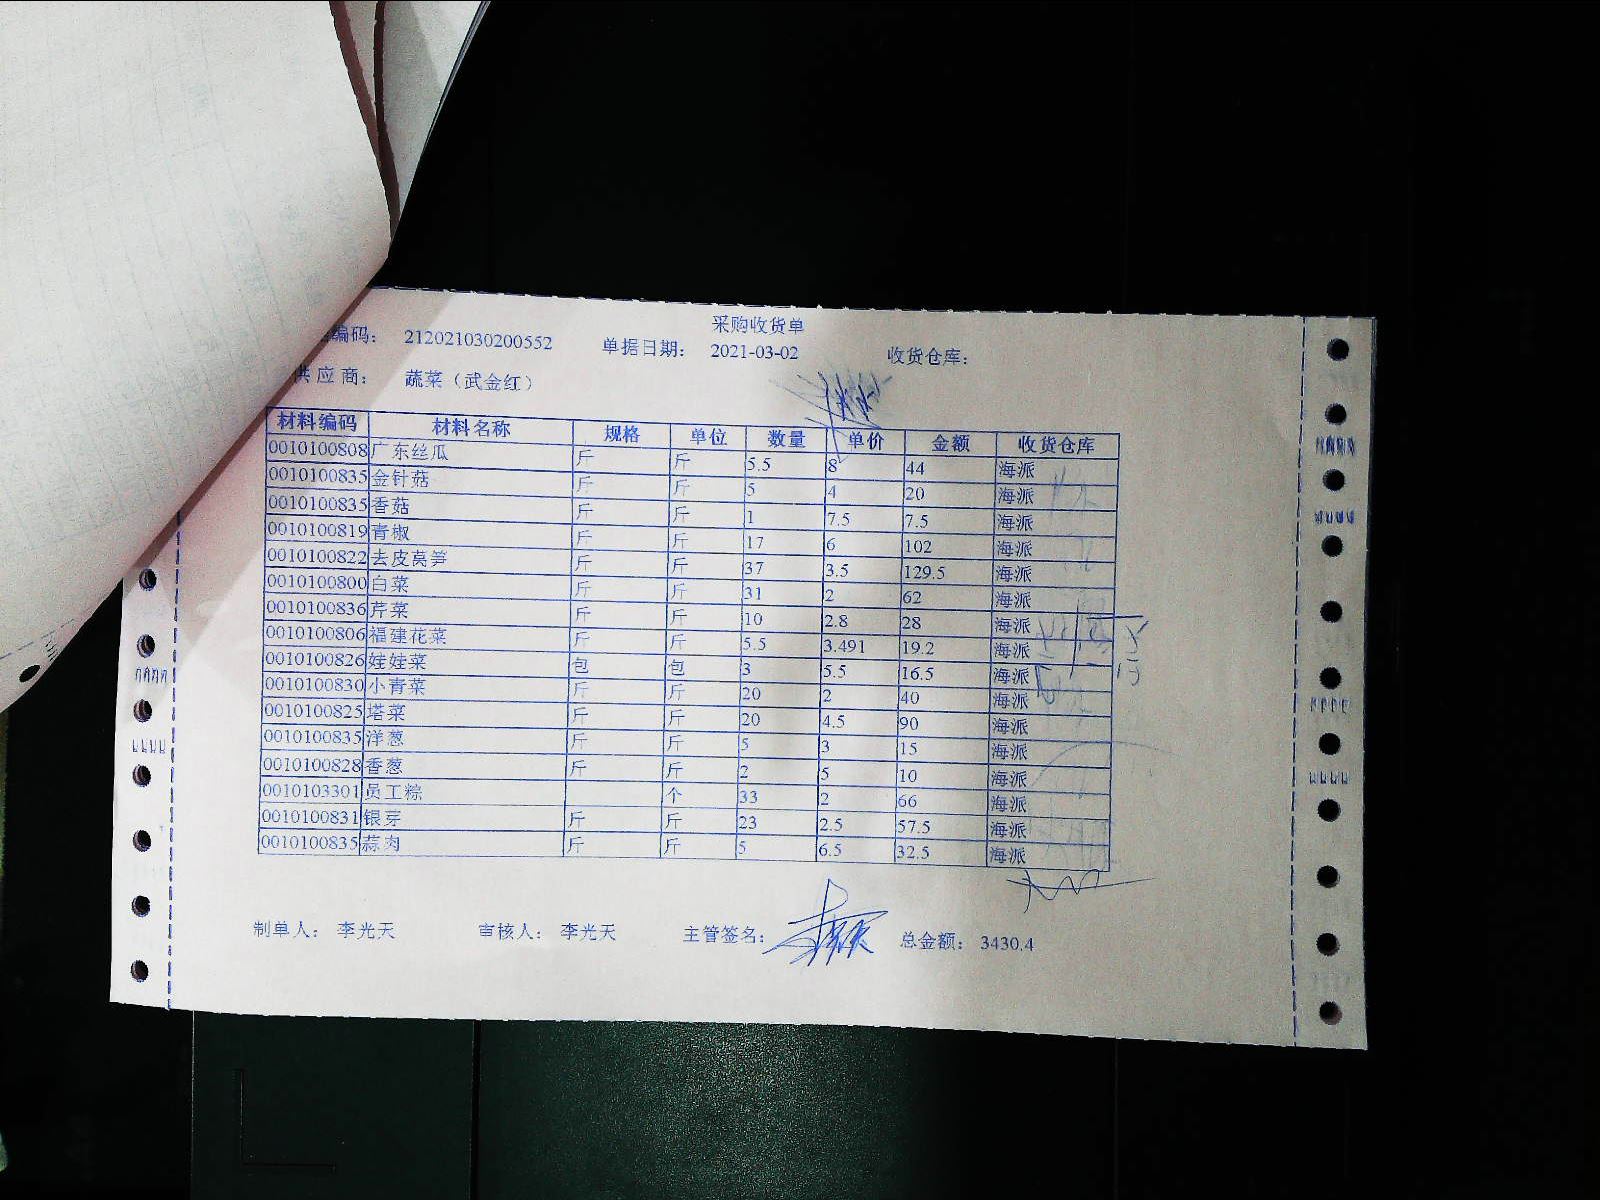 采购收货单
编码： 212021030200552 单据日期： 2021-03-02 收货仓库：
供应商： 蔬菜（武金红）
材料编码 材料名称 规格 单位 数量 单价 金额 收货仓库
0010100808 广东丝瓜 斤 斤 5.5 8 44 海派
0010100835 金针菇 斤 斤 5 4 20 海派
0010100835 香菇 斤 斤 1 7.5 7.5 海派
0010100819 青椒 斤 斤 17 6 102 海派
0010100822 去皮莴笋 斤 斤 37 3.5 129.5 海派
0010100800 白菜 斤 斤 31 2 62 海派
0010100836 芹菜 斤 斤 10 2.8 28 海派
0010100806 福建花菜 斤 斤 5.5 3.491 19.2 海派
0010100826 娃娃菜 包 包 3 5.5 16.5 海派
0010100830 小青菜 斤 斤 20 2 40 海派
0010100825 塔菜 斤 斤 20 4.5 90 海派
0010100835 洋葱 斤 斤 5 3 15 海派
0010100828 香葱 斤 斤 2 5 10 海派
0010103301 员工粽 个 33 2 66 海派
0010100831 银芽 斤 斤 23 2.5 57.5 海派
0010100835 蒜肉 斤 斤 5 6.5 32.5 海派
制单人： 李光天 审核人： 李光天 主管签名： 总金额： 3430.4